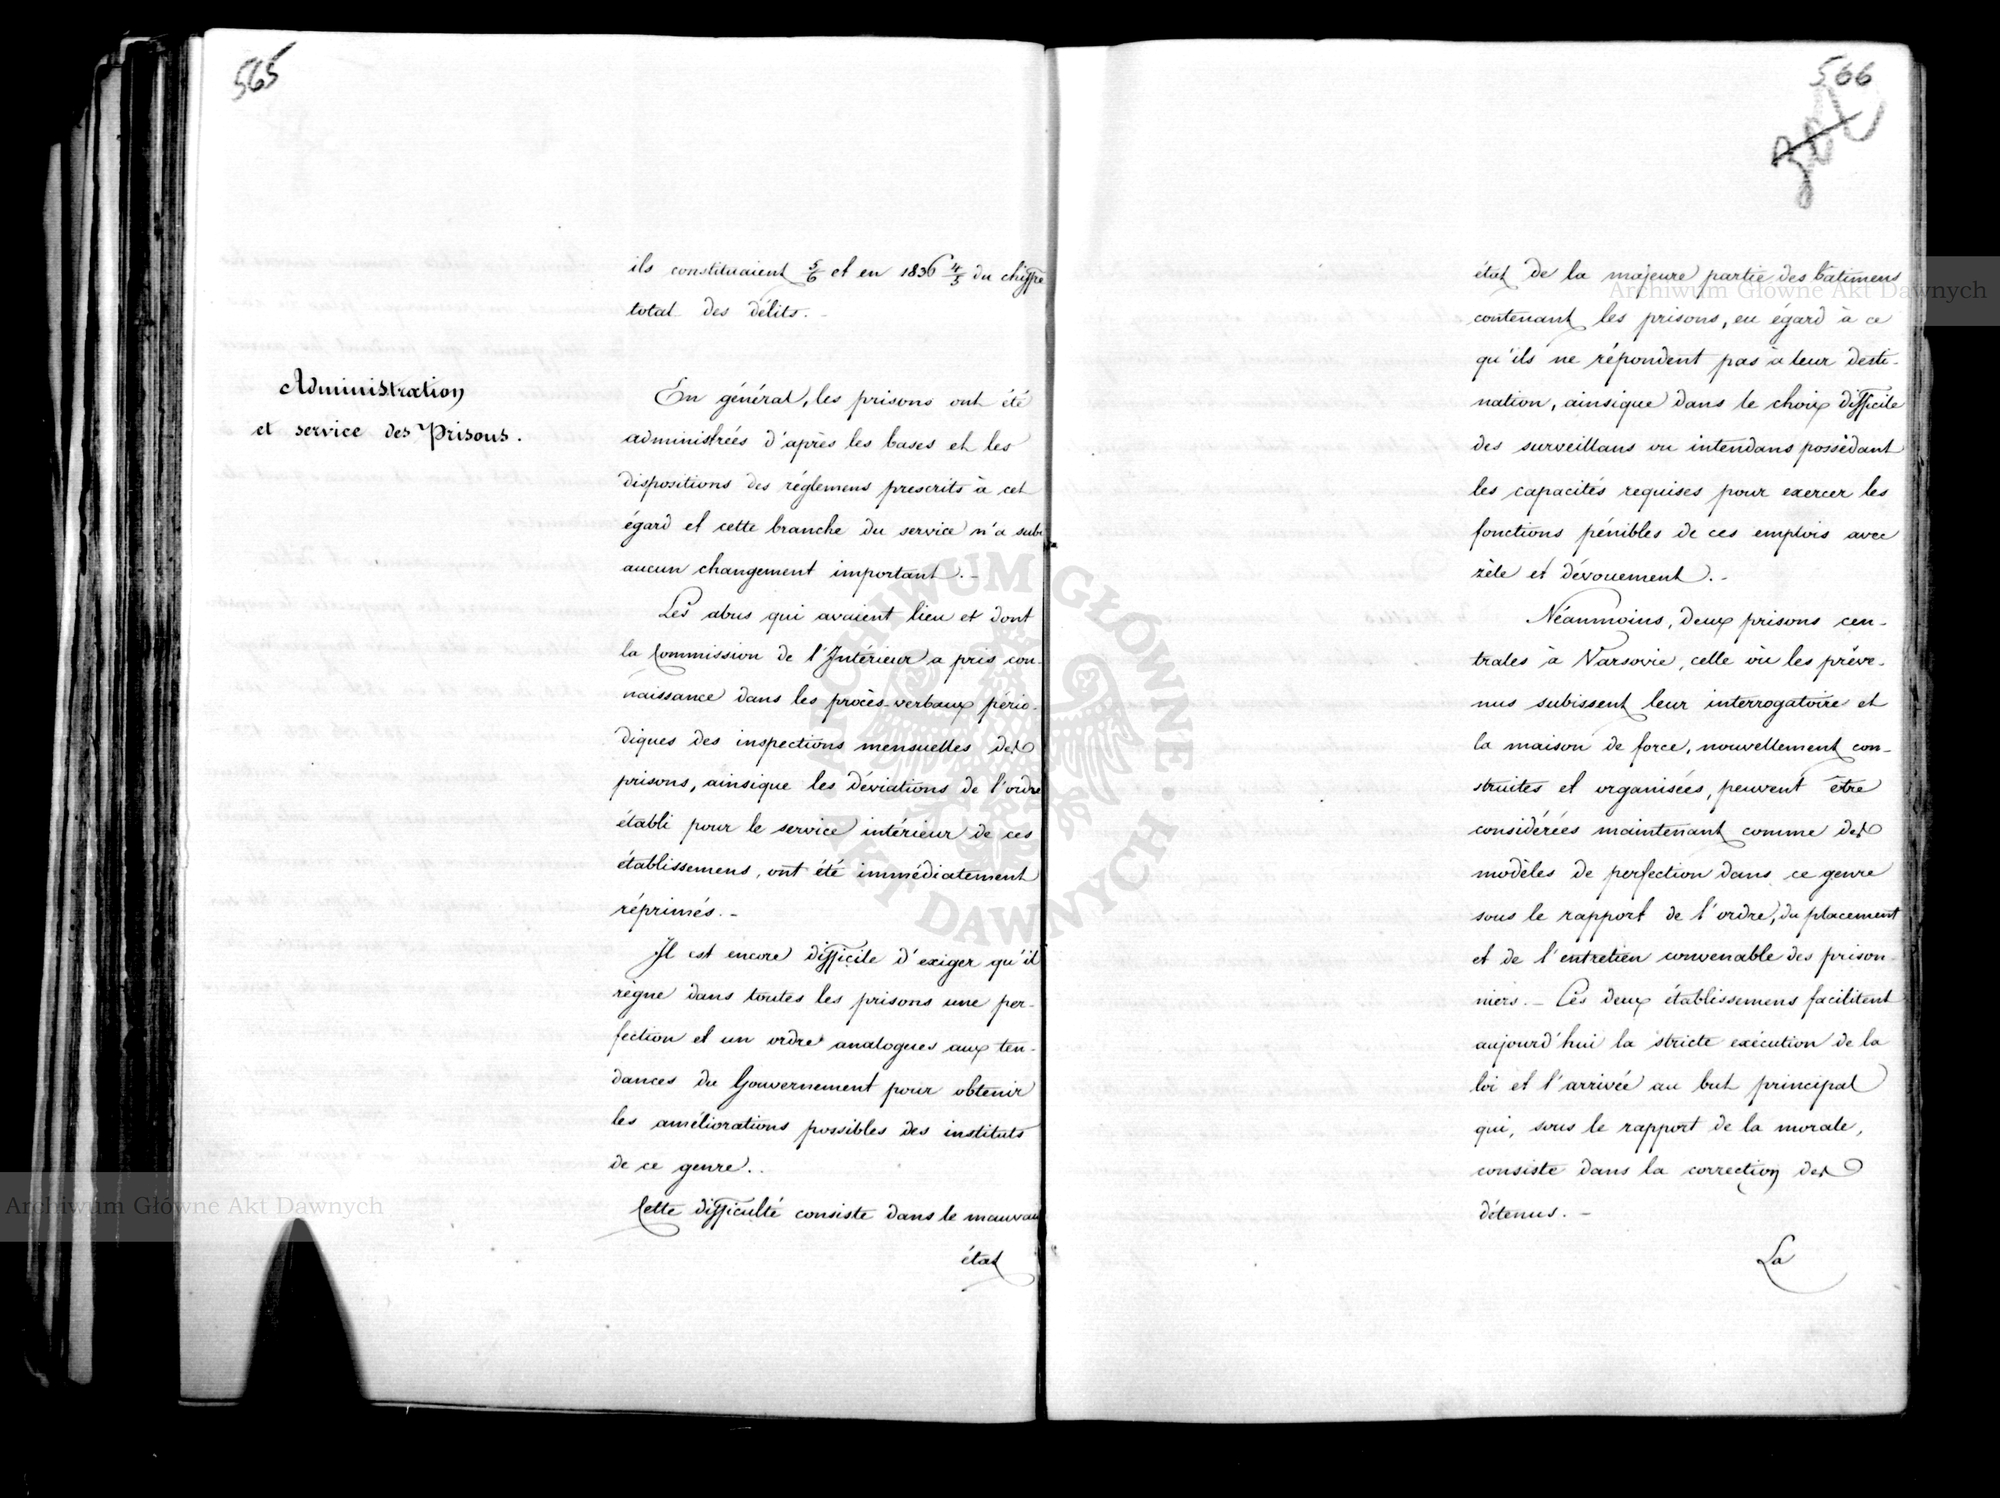 565
ils constituaient 5/6 et en 1836 4/5 du chiffre
total des délits. -
Administration
et service des Prisons.
En général, les prisons ont été
administrées d'après les bases et les
dispositions des réglemens prescrits à cet
égard et cette branche du service n'a subi
aucun changement important. -
Les abus qui avaient lieu et dont
la Commission de l'Intérieur a pris con-
naissance dans les procès-verbaux pério-
diques des inspections mensuelles des
prisons, ainsique les déviations de l'ordre
établi pour le service intérieur de ces
établissemens, ont été immédiatement
réprimés. -
Il est encore difficile d'exiger qu'il
règne dans toutes les prisons une per-
fection et un ordre analogues aux ten-
dances du Gouvernement pour obtenir
les améliorations possibles des instituts
de ce genre. -
Cette difficulté consiste dans le mauvais
état
566
état de la majeure partie des bâtimens
contenant les prisons, eu égard à ce
qu'ils ne répondent pas à leur desti-
nation, ainsique dans le choix difficile
des surveillans ou intendans possédant
les capacités requises pour exercer les
fonctions pénibles de ces emplois avec
zèle et dévouement. -
Néanmoins, deux prisons cen-
trales à Varsovie, celle où les préve-
nus subissent leur interrogatoire et
la maison de force, nouvellement con-
struites et organisées, peuvent être
considérées maintenant comme des
modèles de perfection dans ce genre
sous le rapport de l'ordre, du placement
et de l'entretien convenable des prison-
niers. - Ces deux établissemens facilitent
aujourd'hui la stricte exécution de la
loi et l'arrivée au but principal
qui, sous le rapport de la morale,
consiste dans la correction des
détenus. -
La
Archiwum Główne Akt Dawnych
ARCHIWUM GŁÓWNE AKT DAWNYCH
Archiwum Główne Akt Dawnych